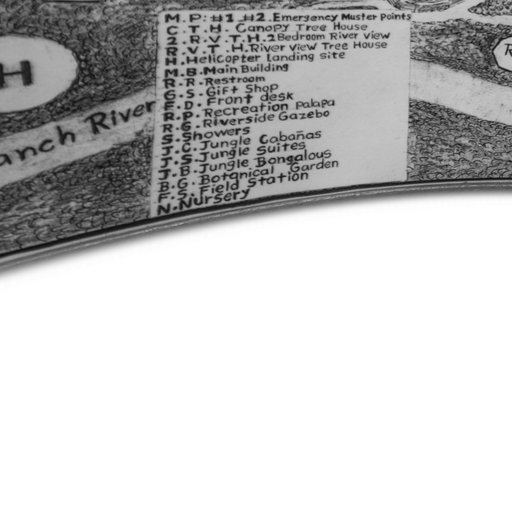 M.P: #1 #2. Emergency Muster Points
C.T.H. Canopy Tree House
2.R.V.T.H.2Bedroom River View
R.V.T.H.River view Tree House
H.Helicopter landing site
M.B.Main Building
R.R.Restroom
G.S.Gift Shop
F.D.Front desk
R.P.Recreation Palapa
R.G.Riverside Gazebo
S.Showers
J.C.Jungle Cabañas
J.S.Jungle Suites
J.B.Jungle Bongalous
B.G.Botanical Garden
F.S.Field Station
N.Nursery
H
anch River
R